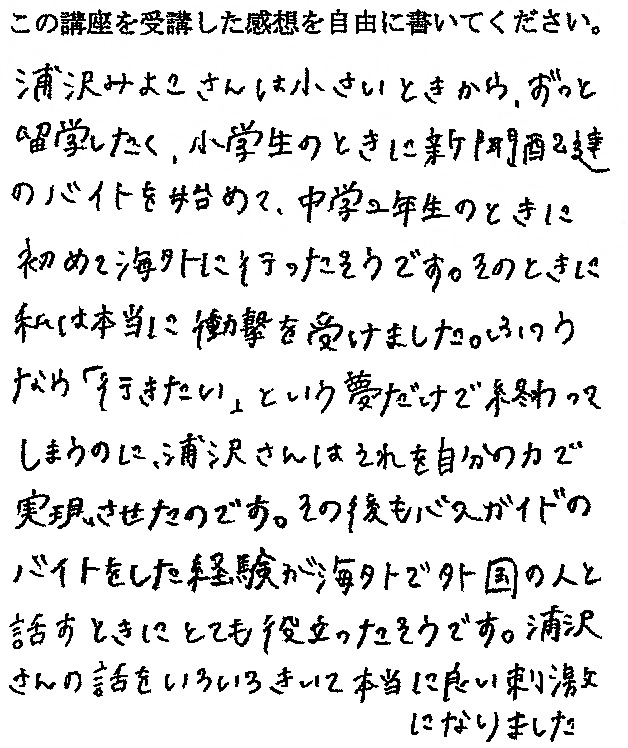 この講座を受講した感想を自由に書いてください。
浦沢みよこさんは小さいときから、ずっと
留学したく、小学生のときに新聞配達
のバイトを始めて、中学2年生のときに
初めて海外に行ったそうです。そのときに
私は本当に衝撃を受けました。ふつう
なら「行きたい」という夢だけで終わって
しまうのに、浦沢さんはそれを自分の力で
実現させたのです。その後もバスガイドの
バイトをした経験が海外で外国の人と
話すときにとても役立ったそうです。浦沢
さんの話をいろいろきいて本当に良い刺激
になりました